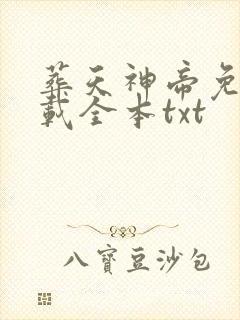 葬天神帝免
载全本txt
八寶豆沙包